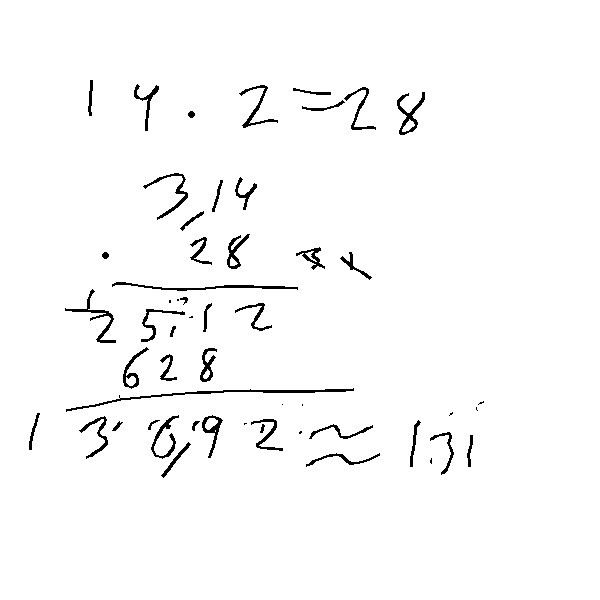 14 · 2 = 28
3,14
· 28
2512
628
130,92 ≈ 131